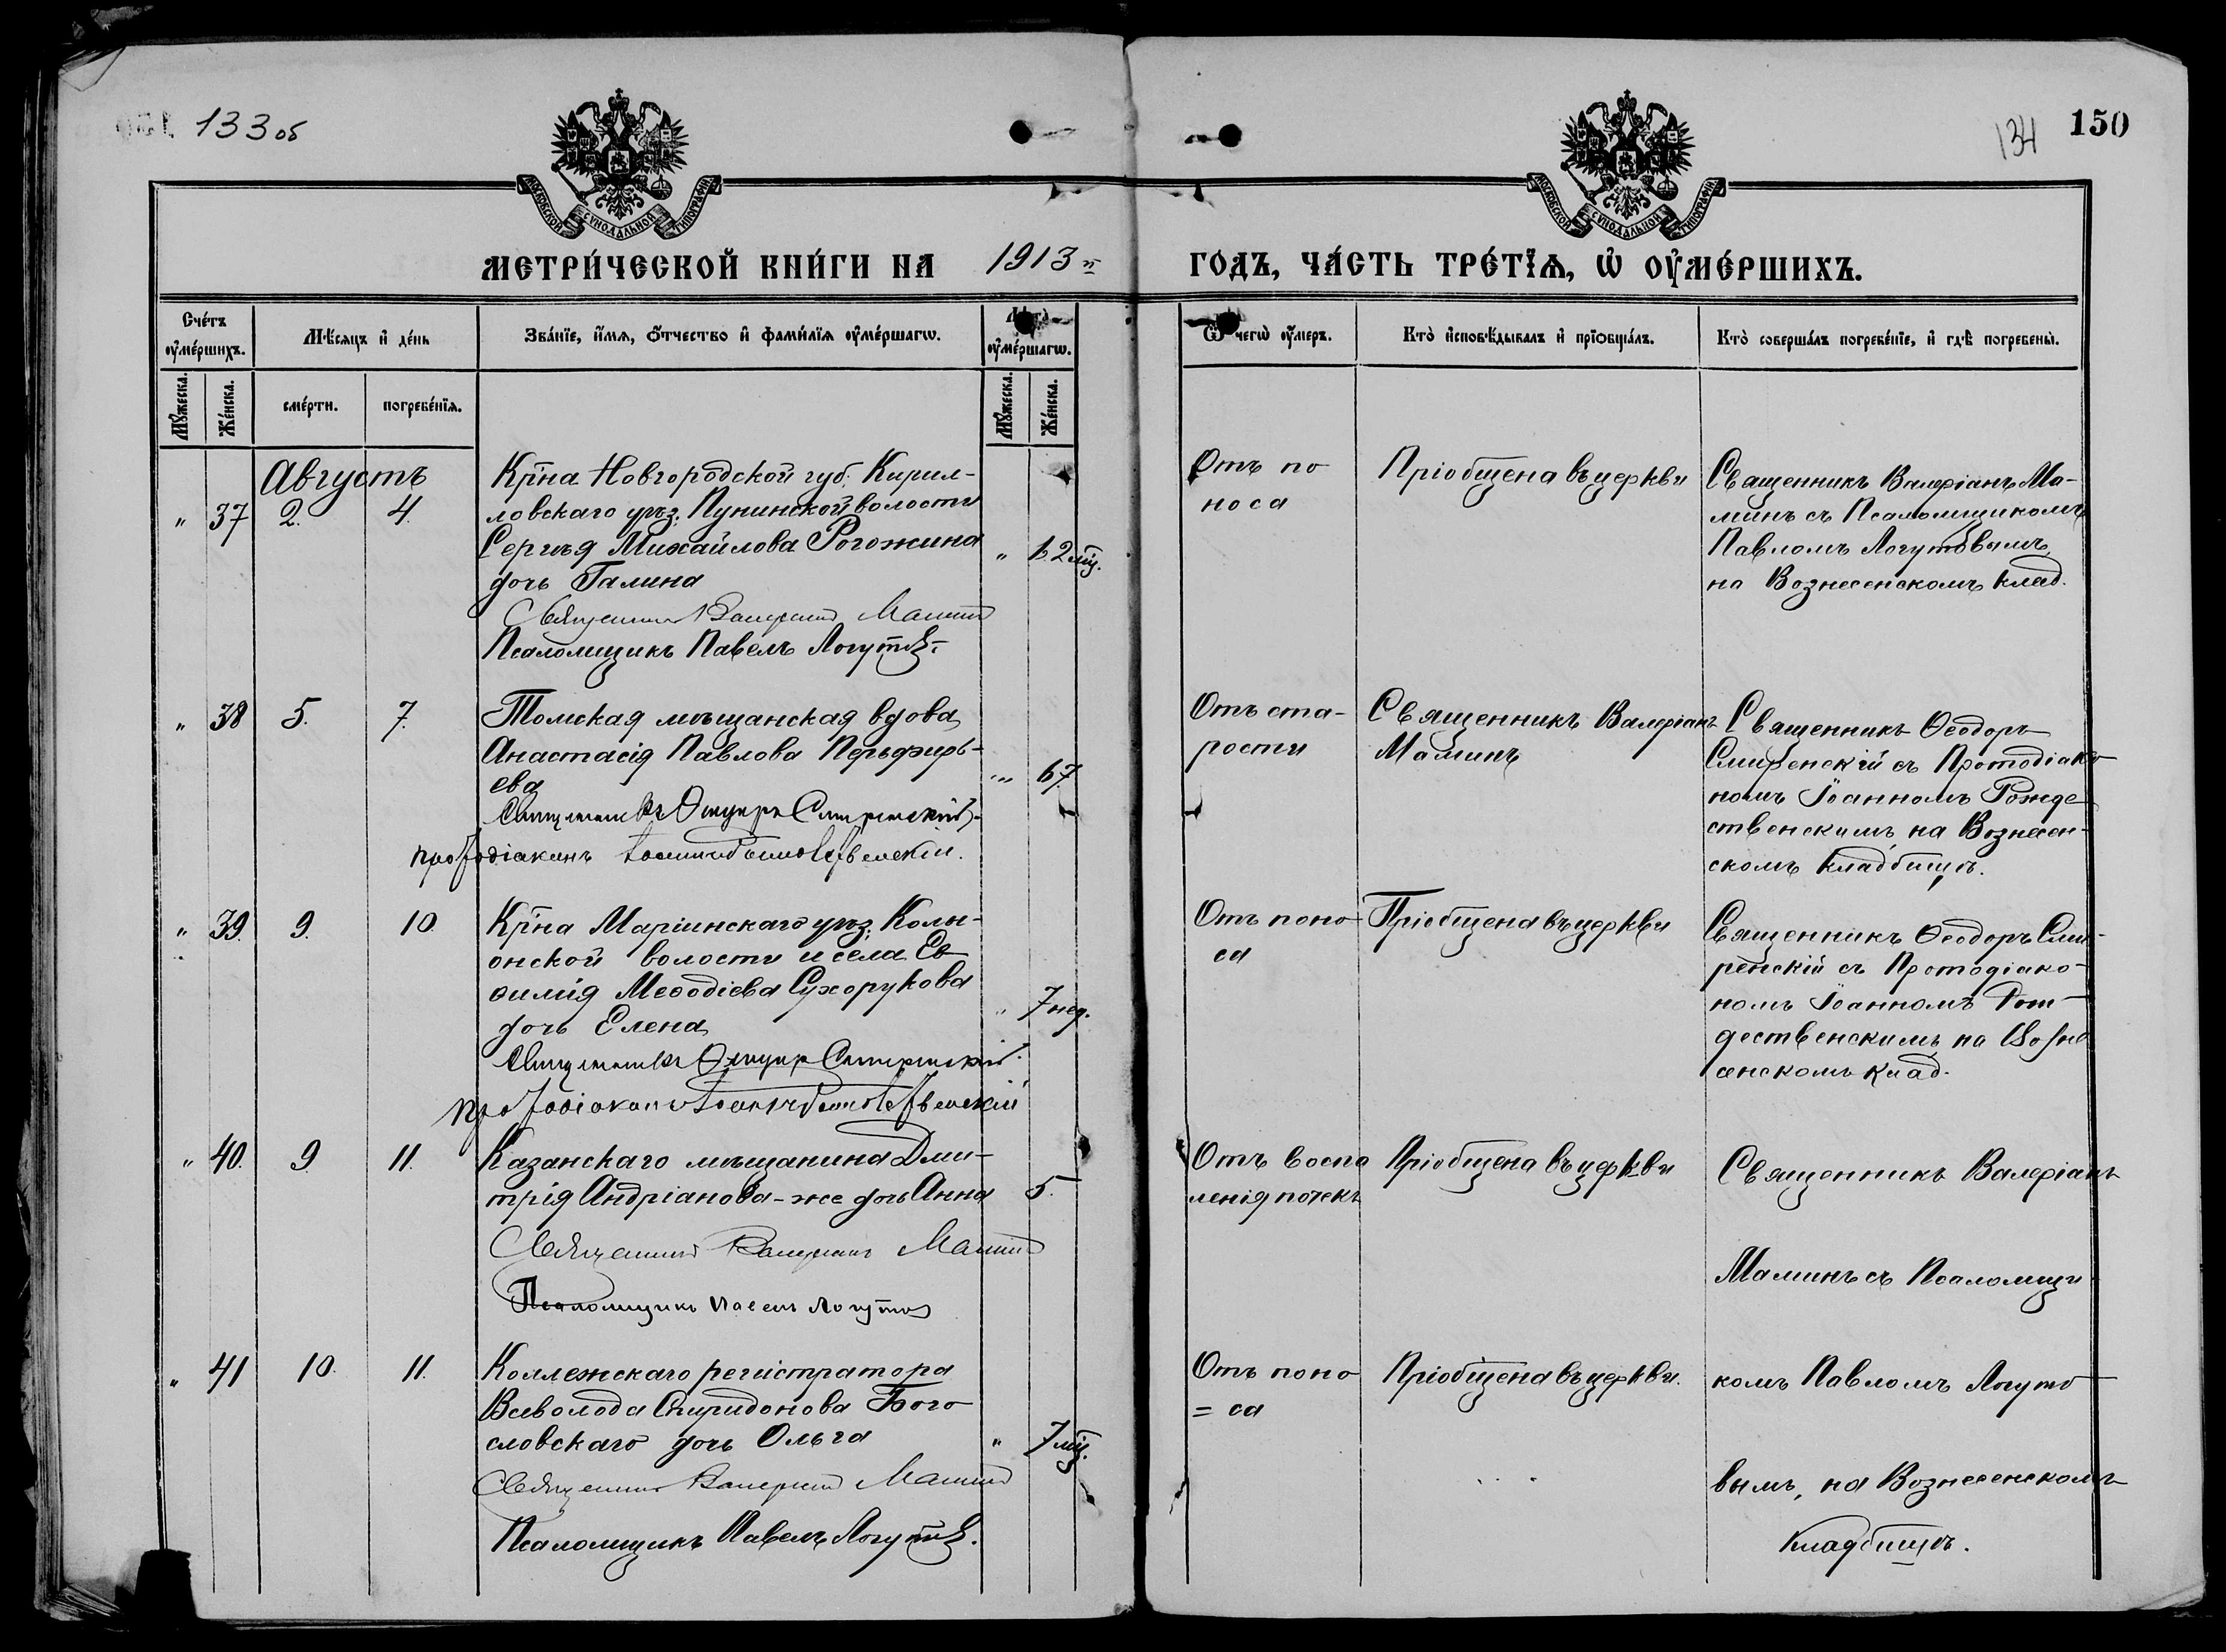 133 об
134
150
МОСКОВСКОЙ СѴНОДАЛЬНОЙ ТИПОГРАФІИ
МОСКОВСКОЙ СѴНОДАЛЬНОЙ ТИПОГРАФІИ
МЕТРИ́ЧЕСКОЙ КНИ́ГИ НА 1913 й ГО́ДЪ, ЧА́СТЬ ТРЕ́ТЇѦ, Ѡ҆ ОУ҆МЕ́РШИХЪ.
Сче́тъ оу҆ме́ршихъ.
Мѣ́сяцъ и҆ де́нь
Зва́нїе, и҆́мя, ѻ҆́тчество и҆ фами́лїя оу҆ме́ршагѡ.
Лѣ́та оу҆ме́ршагѡ.
Ѿ чегѡ̀ оу҆́меръ.
Кто̀ и҆сповѣ́дывалъ и҆ прїѻбща́лъ.
Кто̀ соверша́лъ погребе́нїе, и҆ гдѣ̀ погребены̀.
Мꙋ́жеска.
Же́нска.
сме́рти.
погребе́нїя.
Мꙋ́жеска.
Же́нска.
Августъ
" 37 2. 4.
Кр̄на Новгородской губ. Кирил-
ловскаго уѣз. Пунинской волости
Сергѣя Михайлова Рогожина
дочь Галина
" 1.2 мц.
Священникъ Валеріанъ Маминъ
Псаломщикъ Павелъ Логутовъ
Отъ по
носа
Пріобщена въ церкви
Священникъ Валеріанъ Ма-
минъ съ Псаломщикомъ
Павломъ Логутовымъ,
на Вознесенскомъ клад.
" 38 5. 7.
Томская мѣщанская вдова
Анастасія Павлова Перьфирь-
ева
" 67
Священникъ Ѳеодоръ Смиренскій
Протодіаконъ Іоаннъ Рождественскій.
Отъ ста-
рости
Священникъ Валеріанъ
Маминъ
Священникъ Ѳеодоръ
Смиренскій съ Протодіако-
номъ Іоанномъ Рожде-
ственскимъ, на Вознесен-
скомъ кладбищѣ.
" 39. 9. 10.
Кр̄на Маріинскаго уѣз.
онской волости и села Ев-
ѳимія Меѳодіева Сухорукова
дочь Елена
" 7 нед.
Священникъ Ѳеодоръ Смиренскій.
Протодіаконъ Іоаннъ Рождественскій
Отъ поно-
са
Пріобщена въ церкви
Священникъ Ѳеодоръ Сми-
ренскій съ Протодіако-
номъ Іоанномъ Рож-
дественскимъ, на Возне
сенскомъ клад.
" 40. 9. 11.
Казанскаго мѣщанина Дми-
трія Андріанова-же дочь Анна
5.
Священникъ Валеріанъ Маминъ
Псаломщикъ Павелъ Логутов
Отъ воспа
ленія почекъ
Пріобщена въ церкви
Священникъ Валеріанъ
Маминъ съ Псаломщи
" 41 10. 11.
Коллежскаго регистратора
Всеволода Спиридонова Бого
словскаго дочь Ольга
" 7 мц.
Священникъ Валеріанъ Маминъ
Псаломщикъ Павелъ Логутовъ.
Отъ поно
= са
Пріобщена въ церкви.
комъ Павломъ Логуто
вымъ, на Вознесенскомъ
кладбищѣ.